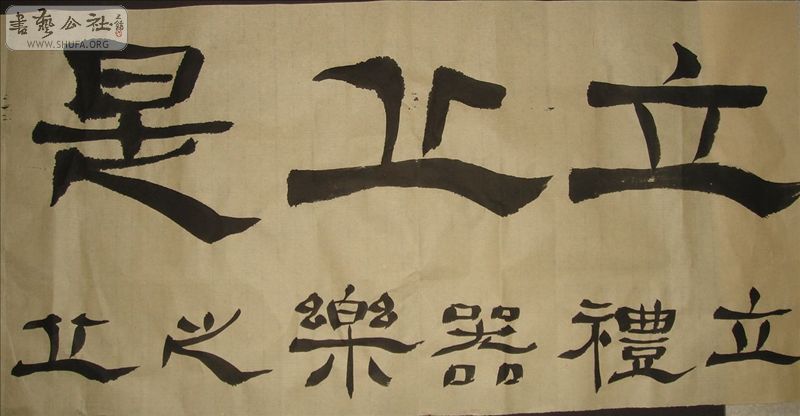 書藝公社
WWW.SHUFA.ORG
立丘是
立禮器樂之丘